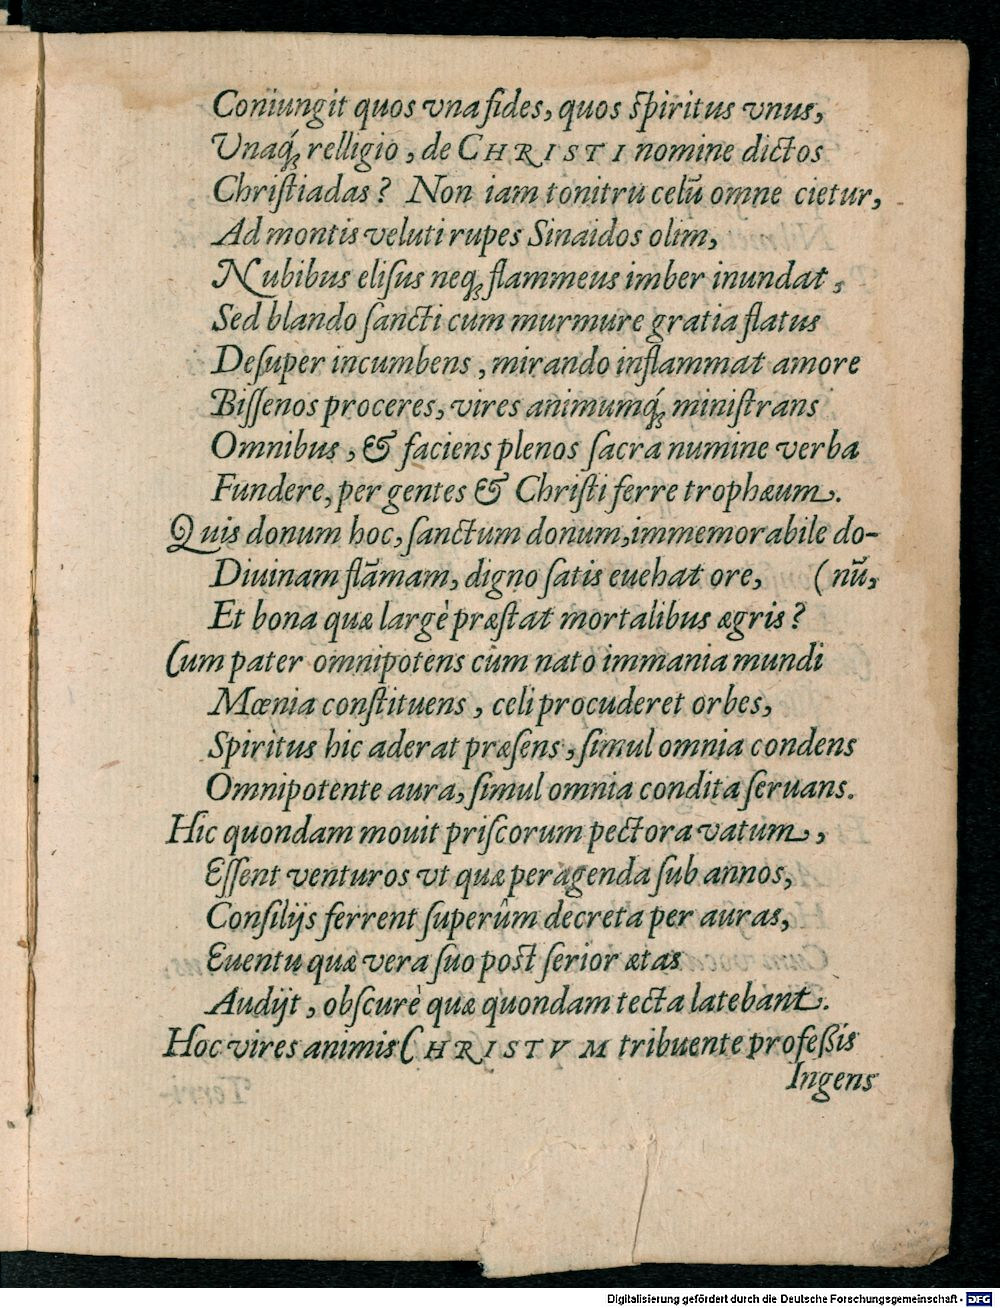 Coniungit quos vna fides, quos spiritus vnus,
Vnaq́; relligio, de CHRISTI nomine dictos
Christiadas? Non iam tonitru celū omne cietur,
Ad montis veluti rupes Sinaidos olim,
Nubibus elisus neq; flammeus imber inundat,
Sed blando sancti cum murmure gratia flatus
Desuper incumbens, mirando inflammat amore
Bissenos proceres, vires animumq́; ministrans
Omnibus, & faciens plenos sacra numine verba
Fundere, per gentes & Christi ferre trophæum.
Quis donum hoc, sanctum donum, immemorabile do-
Diuinam flāmam, digno satis euehat ore, (nū,
Et bona quæ largè præstat mortalibus ægris?
Cum pater omnipotens cum nato immania mundi
Mœnia constituens, celi procuderet orbes,
Spiritus hic aderat præsens, simul omnia condens
Omnipotente aura, simul omnia condita seruans.
Hic quondam mouit priscorum pectora vatum,
Essent venturos vt quæ peragenda sub annos,
Consilijs ferrent superûm decreta per auras,
Euentu quæ vera suo post serior ætas
Audijt, obscurè quæ quondam tecta latebant.
Hoc vires animis CHRISTVM tribuente professis
Ingens
Digitalisierung gefördert durch die Deutsche Forschungsgemeinschaft - DFG